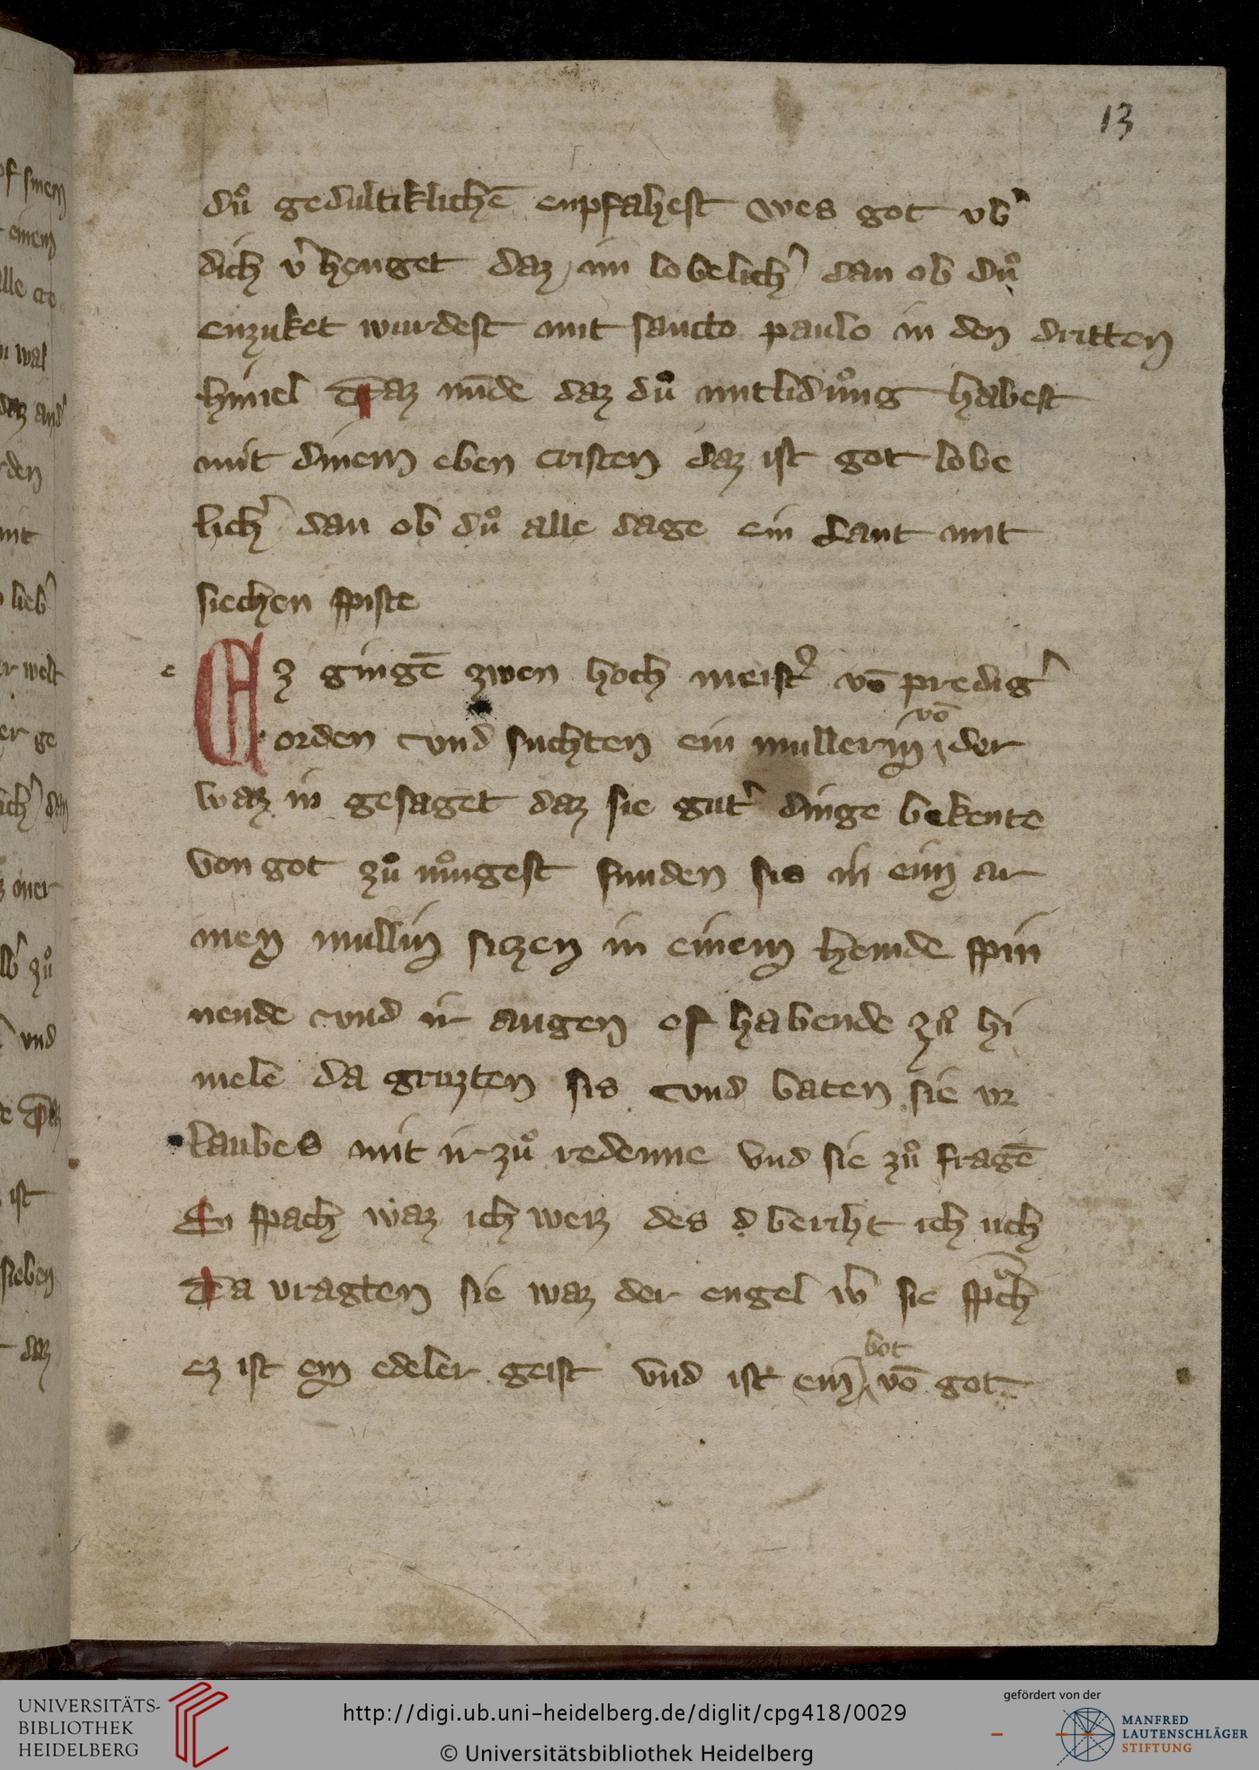 13
duͦ gedultiklichē enpfahest wes got vbˀ
dich vˀhenget daz im lobelichˀ dan ob duͦ
enzuket wurdest mit sancto paulo in den dritten
himel Daz nūde daz duͦ mitliduͦng habest
mit dinem eben cristen daz ist got lobe
lichˀ dan ob duͦ alle dage ein lant mit
siechen spiste
e
Ez gingē zwen hoch meistˀ vō predigˀ
orden vnd suchten ein mullerin vō der
waz in gesaget daz sie gutˀ dinge bekente
von got zuͦ iuͦngest funden sis in ein ar
men mullin siczen in einem hemde spin
nende vnd ir augen of habende zuͦ hi
mele da gruzten sis vnd baten sie vr
laubes mit ir zuͦ redenne vnd sie zuͦ fragē
Si spach waz ich weiz des beriht ich uch
Da vragten sie waz der engel wˀ sie spͣch
ez ist ein edeler geist vnd ist ein bot vō got
UNIVERSITÄTS-
BIBLIOTHEK
HEIDELBERG
http://digi.ub.uni-heidelberg.de/diglit/cpg418/0029
© Universitätsbibliothek Heidelberg
gefördert von der
MANFRED
LAUTENSCHLÄGER
STIFTUNG